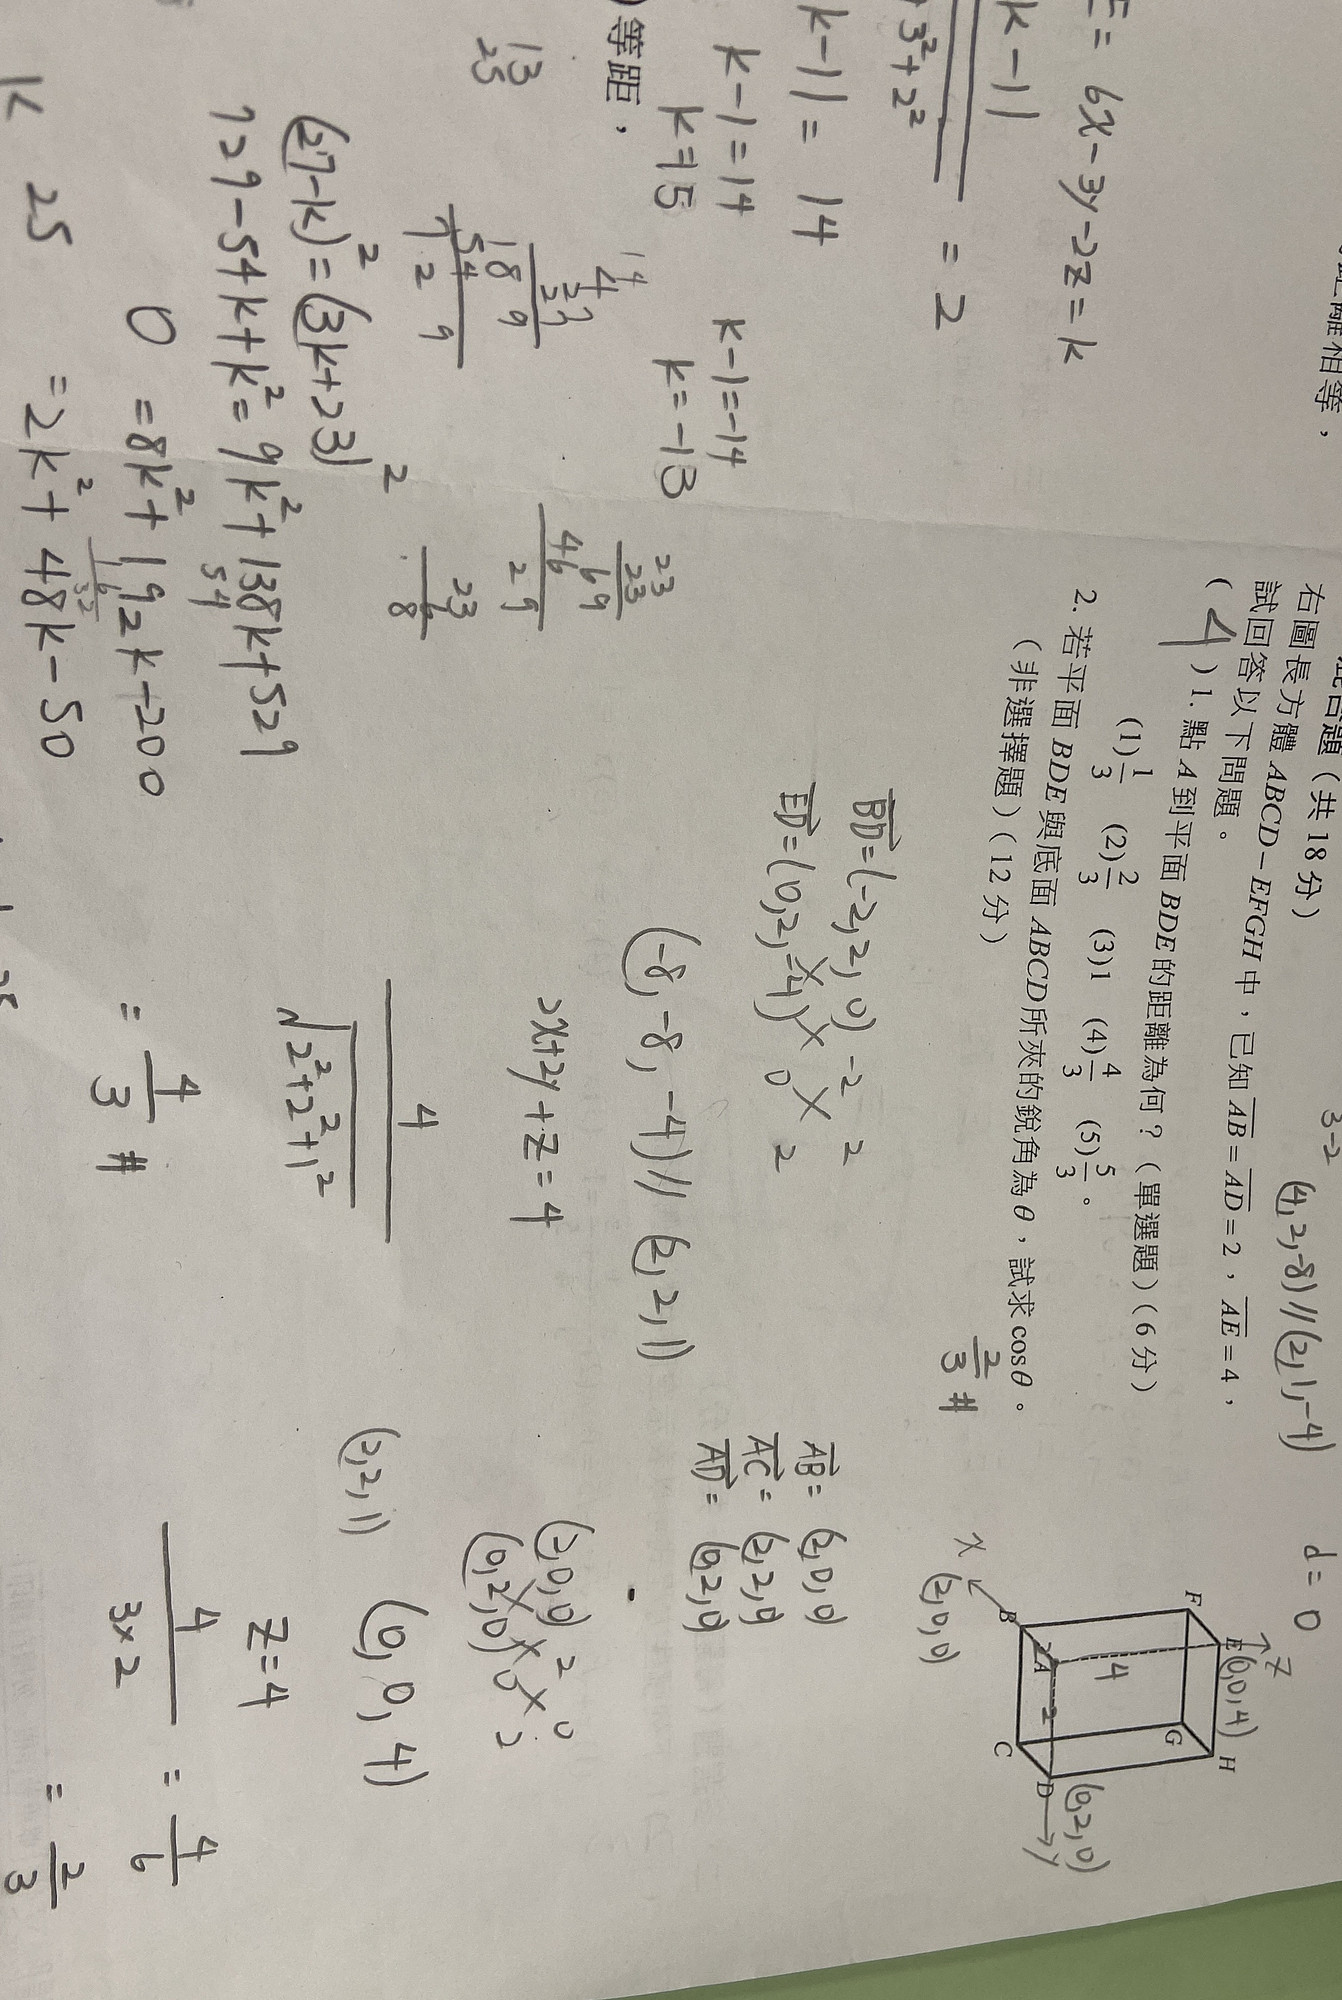 距離相等，
E= 6x-3y-2z=k
k-1|
3²+2² = 2
k-1|= 14
k-1=14 k-1=-14
k=15 k=-13
等距，
13
25
14
4
27
27
189
54
729
23
23
69
46
529
23
(27-k)²=(3k+23)²
729-54k+k²=9k²+138k+529
54
0 =8k²+192k-200
=2k²+48k-50
k 25
混合題（共 18 分）
3-2
(4,2,-8)//(2,1,-4)
d=0
右圖長方體 ABCD-EFGH 中，已知 AB=AD=2，AE=4，
試回答以下問題。
( 4 ) 1. 點 A 到平面 BDE 的距離為何？（單選題）（6 分）
(1) 1/3 (2) 2/3 (3) 1 (4) 4/3 (5) 5/3 。
2. 若平面 BDE 與底面 ABCD 所夾的銳角為 θ，試求 cosθ。
（非選擇題）（12 分）
2/3 #
BD=(-2,2,0) -2 2
ED=(0,2,-4) 0 2
(-8,-8,-4)//(2,2,1)
2x+2y+z=4
4
√2²+2²+1²
= 4/3 #
Z
E(0,0,4)
F
H
G
4
A
2
2
B
C
D
(0,2,0)
y
x
(2,0,0)
AB= (2,0,0)
AC= (2,2,0)
AD= (0,2,0)
(2,0,0) 2 0
(0,2,0) 0 2
(2,2,1) (0,0,4)
z=4
4/3×2 = 4/6
= 2/3